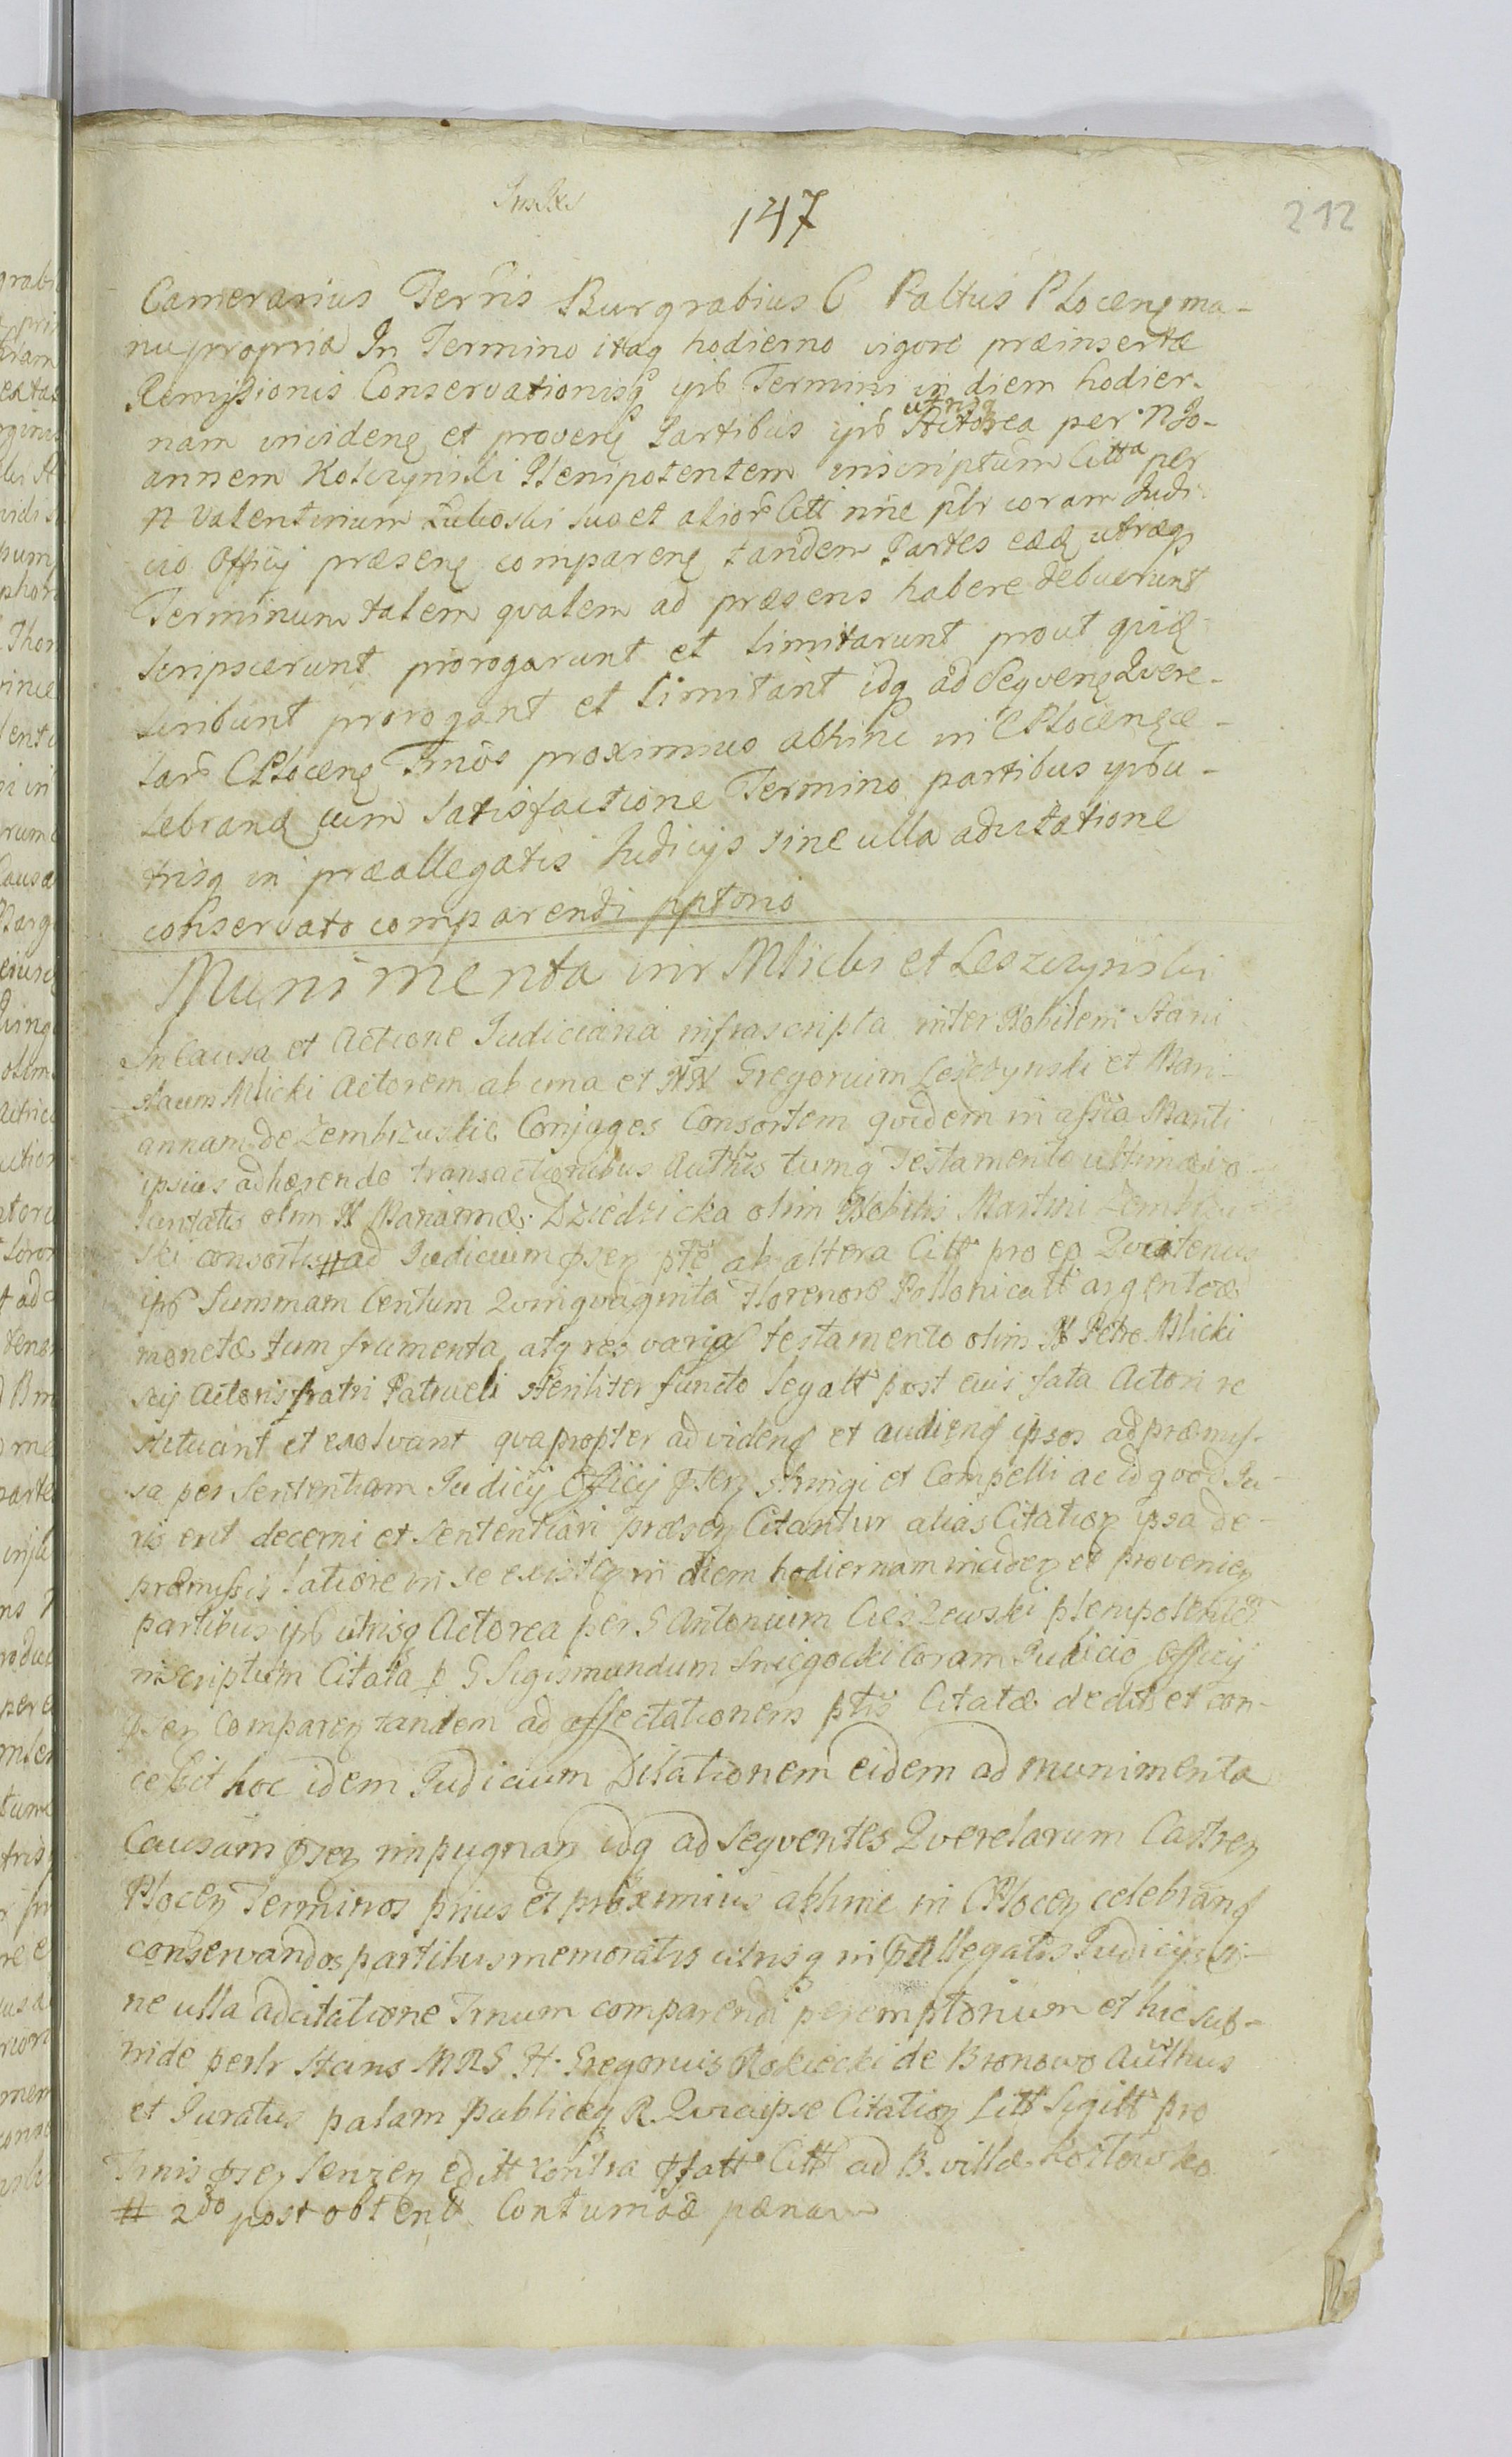 147
212
Camerarius Terris Burgrabius C Paltus Ploceng ma-
nu propria In Termino itaq hodierno vigore præinsertæ
Remissionis Conservationisq ipb Termini in diem hodier-
nam incideng et proveng Partibus ipb utrisq Actorea per N Jo-
annem Kolczynski Plenipotentem inscriptum Citta per
N Valentinum suo et alior Citt nne coram Judi
cio Officij præseng compareng tandem Partes eæd utræq
Terminum talem qvalem ad præsens habere debuerunt
scripserunt prorogarunt et limitarunt prout qvid
scribunt prorogant et limitant idq ad Seqveng Qvere-
lar C Ploceng Tmos proximius abhinc in C Ploceng ce-
lebrand cum satisfactione Termino partibus ipb u-
trisq in præallegatis Judicijs sine ulla adcitatione
conservato comparendi pptorio
Munimenta intr Mlicki et Leszczynski
In Causa et Actione Judiciaria infrascripta inter Nobilem Stani
slaum Mlicki Actorem ab una et NN Gregorium Leszczynski et Mari-
annam de Zembrzuskie Conjuges Consortem qvidem in assta Mariti
ipsius adhærendo transactionibus Authcis tumq Testamento ultimæ vo-
luntatis olim N Mariannæ Dziedzicka olim Nobilis Martini Zembrzu
ski consortis # ad Judicium pte ab altera Citt pro eo Qvatenus
ipb Summam Centum Qvinqvaginta Florenor Pollonicatt argenteæ
monetæ tum frumenta atq res varias testamento olim N Petro Mlicki
Actoris fratri Patrueli steriliter functo legatt post eius fata Actori re
stituant et exolvant qvapropter ad videng et audieng ipsos ad præmis-
sa per Sententiam Judicij Officij stringi et Compelli ac id qvod Ju-
ris erit decerni et Sententiari Citantur alias Citation ipsa de
præmissis latiore in se existen in diem hodiernam inciden et provenien
partibus ipb utrisq Actorea per G Antonium Cieszewski plenipotentem
inscriptum Citata p G Sigismundum Sniegocki Coram Judicio Officij
Comparen tandem ad affectationem ptis Citatæ dedit et con-
cessit hoc idem Judicium Dilationem eidem ad munimenta
Causam impugnan idq ad Seqventes Qverelarum Castren
Plocen Terminos prius et proximius abhinc in C Plocen celebrand
conservandos partibus memoratis utrisq in pallegatis Judicijs si-
ne ulla adcitatione Tmum comparendi peremptorium et hic sub-
inde perlr Stans MRS H Gregorius Rokicki de Bronowo Authcus
et Juratus palam publiceq R. Qvia ipse Citation Litt Sigitt pro
Tmis editt contra pfatt Citt ad B. villæ
# 2do post obtent Contumaciæ pænam